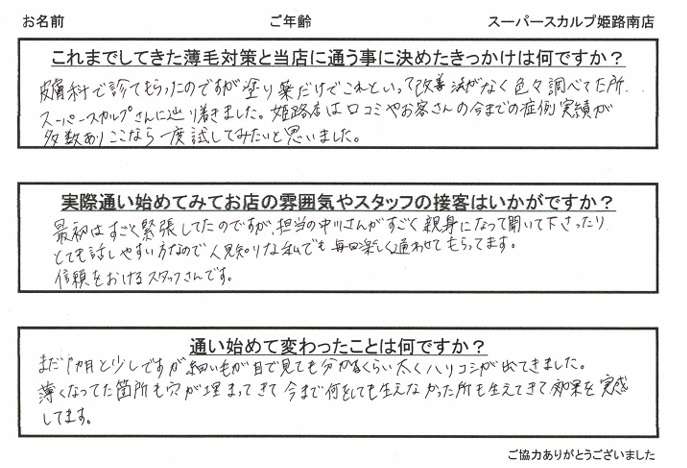 お名前 ご年齢 スーパースカルプ姫路南店
これまでしてきた薄毛対策と当店に通う事に決めたきっかけは何ですか？
皮膚科で診てもらったのですが塗り薬だけでこれといって改善法がなく色々調べてた所、
スーパースカルプさんに辿り着きました。姫路店は口コミやお客さんの今までの症例実績が
多数ありここなら一度試してみたいと思いました。
実際通い始めてみてお店の雰囲気やスタッフの接客はいかがですか？
最初はすごく緊張してたのですが、担当の中川さんがすごく親身になって聞いて下さったり
とても話しやすい方なので人見知りな私でも毎回楽しく通わせてもらってます。
信頼をおけるスタッフさんです。
通い始めて変わったことは何ですか？
まだ1カ月と少しですが細い毛が目で見ても分かるくらい太くハリコシが出てきました。
薄くなってた箇所も穴が埋まってきて今まで何をしても生えなかった所も生えてきて効果を実感
してます。
ご協力ありがとうございました